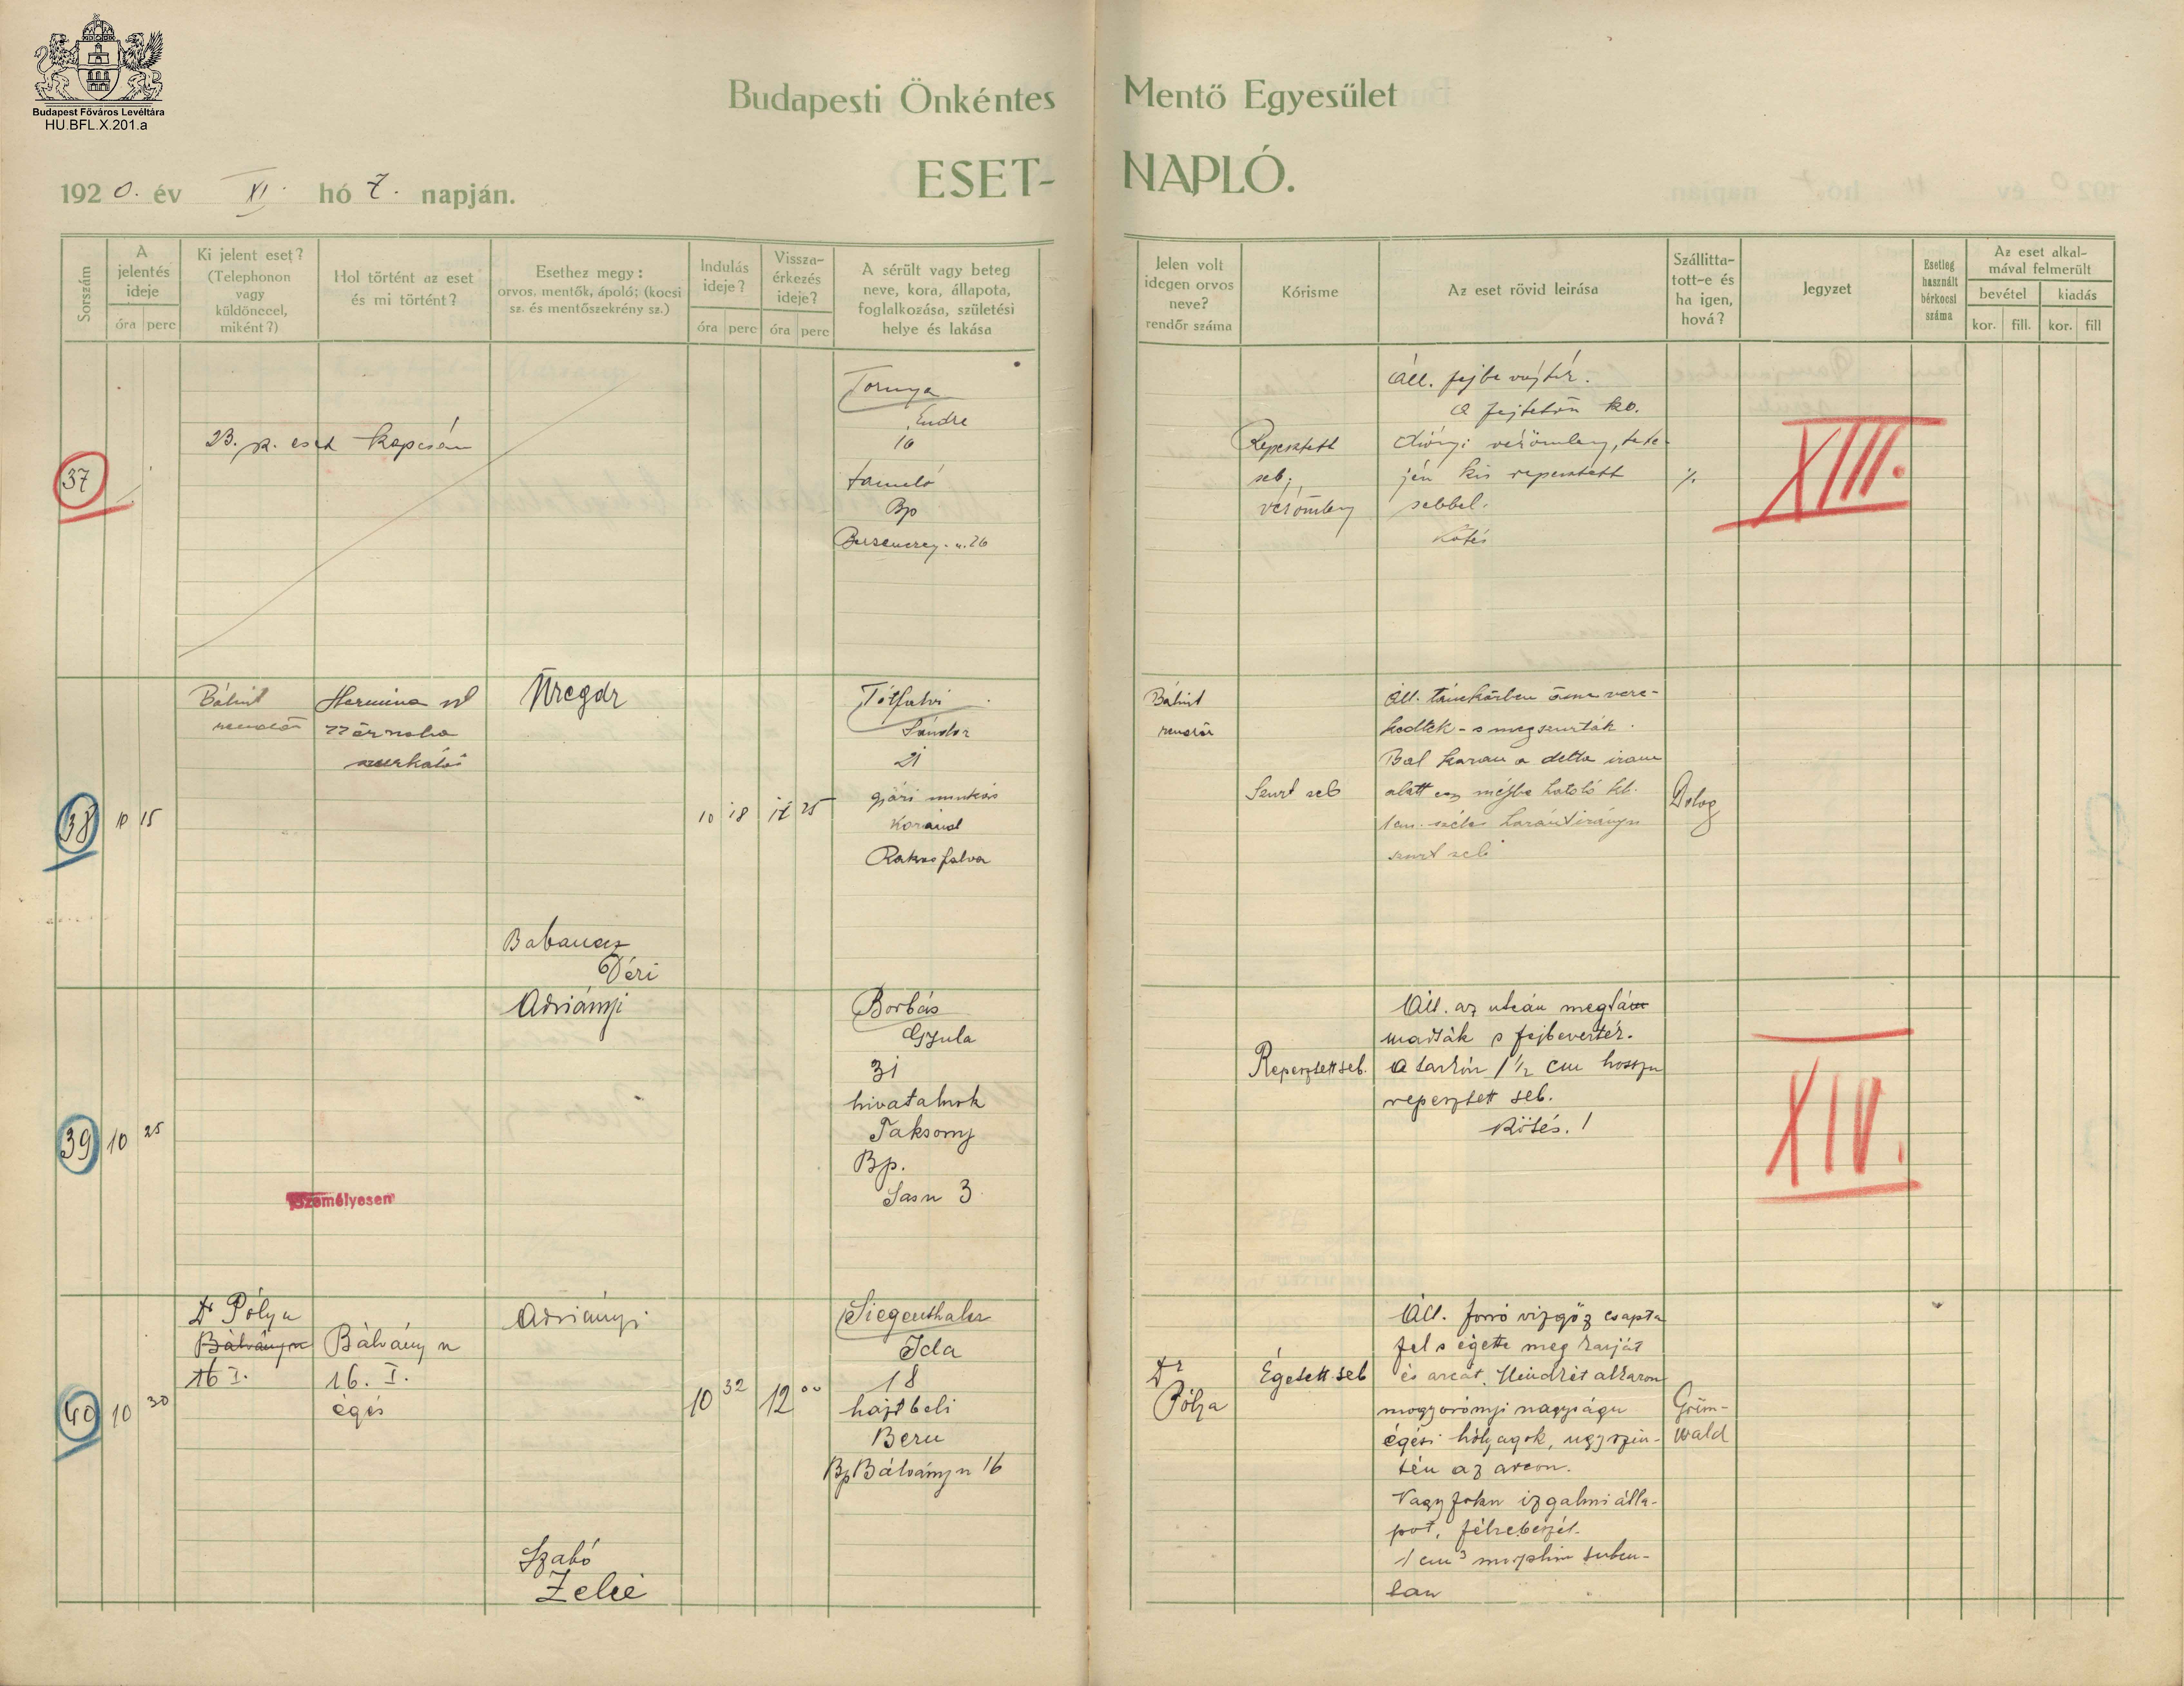 Budapest Főváros Levéltára
HU.BFL.X.201.a
Budapesti Önkéntes Mentő Egyesület
ESET- NAPLÓ.
1920. év XI. hó 7. napján.
Sorszám
A jelentés ideje
óra perc
Ki jelent eset?
(Telephonon
vagy
küldönccel,
miként?)
Hol történt az eset
és mi történt?
Esethez megy:
orvos, mentők, ápoló; (kocsi
sz. és mentőszekrény sz.)
Indulás
ideje?
óra perc
Vissza-
érkezés
ideje?
óra perc
A sérült vagy beteg
neve, kora, állapota,
foglalkozása, születési
helye és lakása
Jelen volt
idegen orvos
neve?
rendőr száma
Kórisme
Az eset rövid leirása
Szállitta-
tott-e és
ha igen,
hová?
Jegyzet
Esetleg
használt
bérkocsi
száma
Az eset alkal-
mával felmerült
bevétel kiadás
kor. fill. kor. fill
37
23. sz. eset kapcsán
Tornya
Endre
16
tanuló
Bp
Repesztett
seb,
vérömleny
Áll. fejbe
A fejtetőn ko.
diónyi vérömleny, tete-
jén kis repesztett
sebbel.
Kötés
%
XIII.
38
10 15
Bálint
rendőr
Hermina
Üregdr
Babanecz
Déri
10 18
11 25
Tótfalvi
Sándor
21
gyári munkás
Rákosfalva
Bálint
rendőr
Szurt seb
Áll. tánckörben össze vere-
kedtek - s megszurták.
Bal karan a delta izom
alatt egy mélybe hatoló kb.
1 cm. széles harántirányu
szurt seb
Dolog
39
10 25
Személyesen
Adriányi
Borbás
Gyula
31
hivatalnok
Taksony
Bp.
Sas u 3
Repesztett seb.
Áll. az utcán megtám
madták s fejbeverték.
A tarkón 1 1/2 cm hosszu
repesztett seb.
Kötés. !
XIV.
40
10 30
Dr Pólya
Bálvány u
16 I.
Bálvány u
16. I.
égés
Adriányi
Szabó
Zelei
10 32
12 00
Siegenthaler
Ida
18
hajd beli
Beru
Bp Bálvány u 16
Dr
Pólya
Égetett seb
Áll. forró vizgőz csapta
fel s égette meg karját
és arcát. Mindkét alkaron
mogyorónyi nagyságu
égési hólyagok, ugyszin-
tén az arcon.
Nagyfoku izgalmi álla-
pot, félrebeszél.
1 cm3 morphin subcu-
tan
Grün-
wald